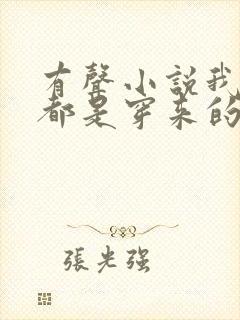 有聲小説我
都是穿来的
張光强